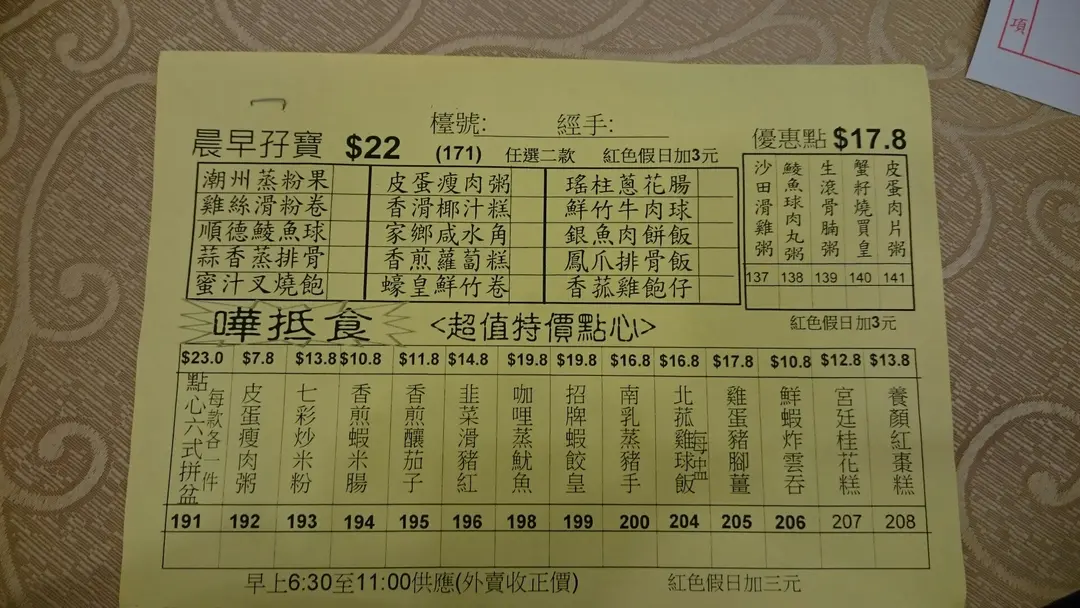 項
檯號: 經手:
晨早孖寶 $22 (171) 任選二款 紅色假日加3元
潮州蒸粉果 皮蛋瘦肉粥 瑤柱蔥花腸
雞絲滑粉卷 香滑椰汁糕 鮮竹牛肉球
順德鯪魚球 家鄉咸水角 銀魚肉餅飯
蒜香蒸排骨 香煎蘿蔔糕 鳳爪排骨飯
蜜汁叉燒飽 蠔皇鮮竹卷 香菰雞飽仔
優惠點 $17.8
沙田滑雞粥
鯪魚球肉丸粥
生滾骨腩粥
蟹籽燒買皇
皮蛋肉片粥
137 138 139 140 141
紅色假日加3元
嘩抵食 <超值特價點心>
$23.0 $7.8 $13.8 $10.8 $11.8 $14.8 $19.8 $19.8 $16.8 $16.8 $17.8 $10.8 $12.8 $13.8
點心六式拼盆
每款各一件
皮蛋瘦肉粥
七彩炒米粉
香煎蝦米腸
香煎釀茄子
韭菜滑豬紅
咖哩蒸魷魚
招牌蝦餃皇
南乳蒸豬手
北菰雞球飯
每盅
雞蛋豬腳薑
鮮蝦炸雲吞
宮廷桂花糕
養顏紅棗糕
191 192 193 194 195 196 198 199 200 204 205 206 207 208
早上6:30至11:00供應(外賣收正價) 紅色假日加三元